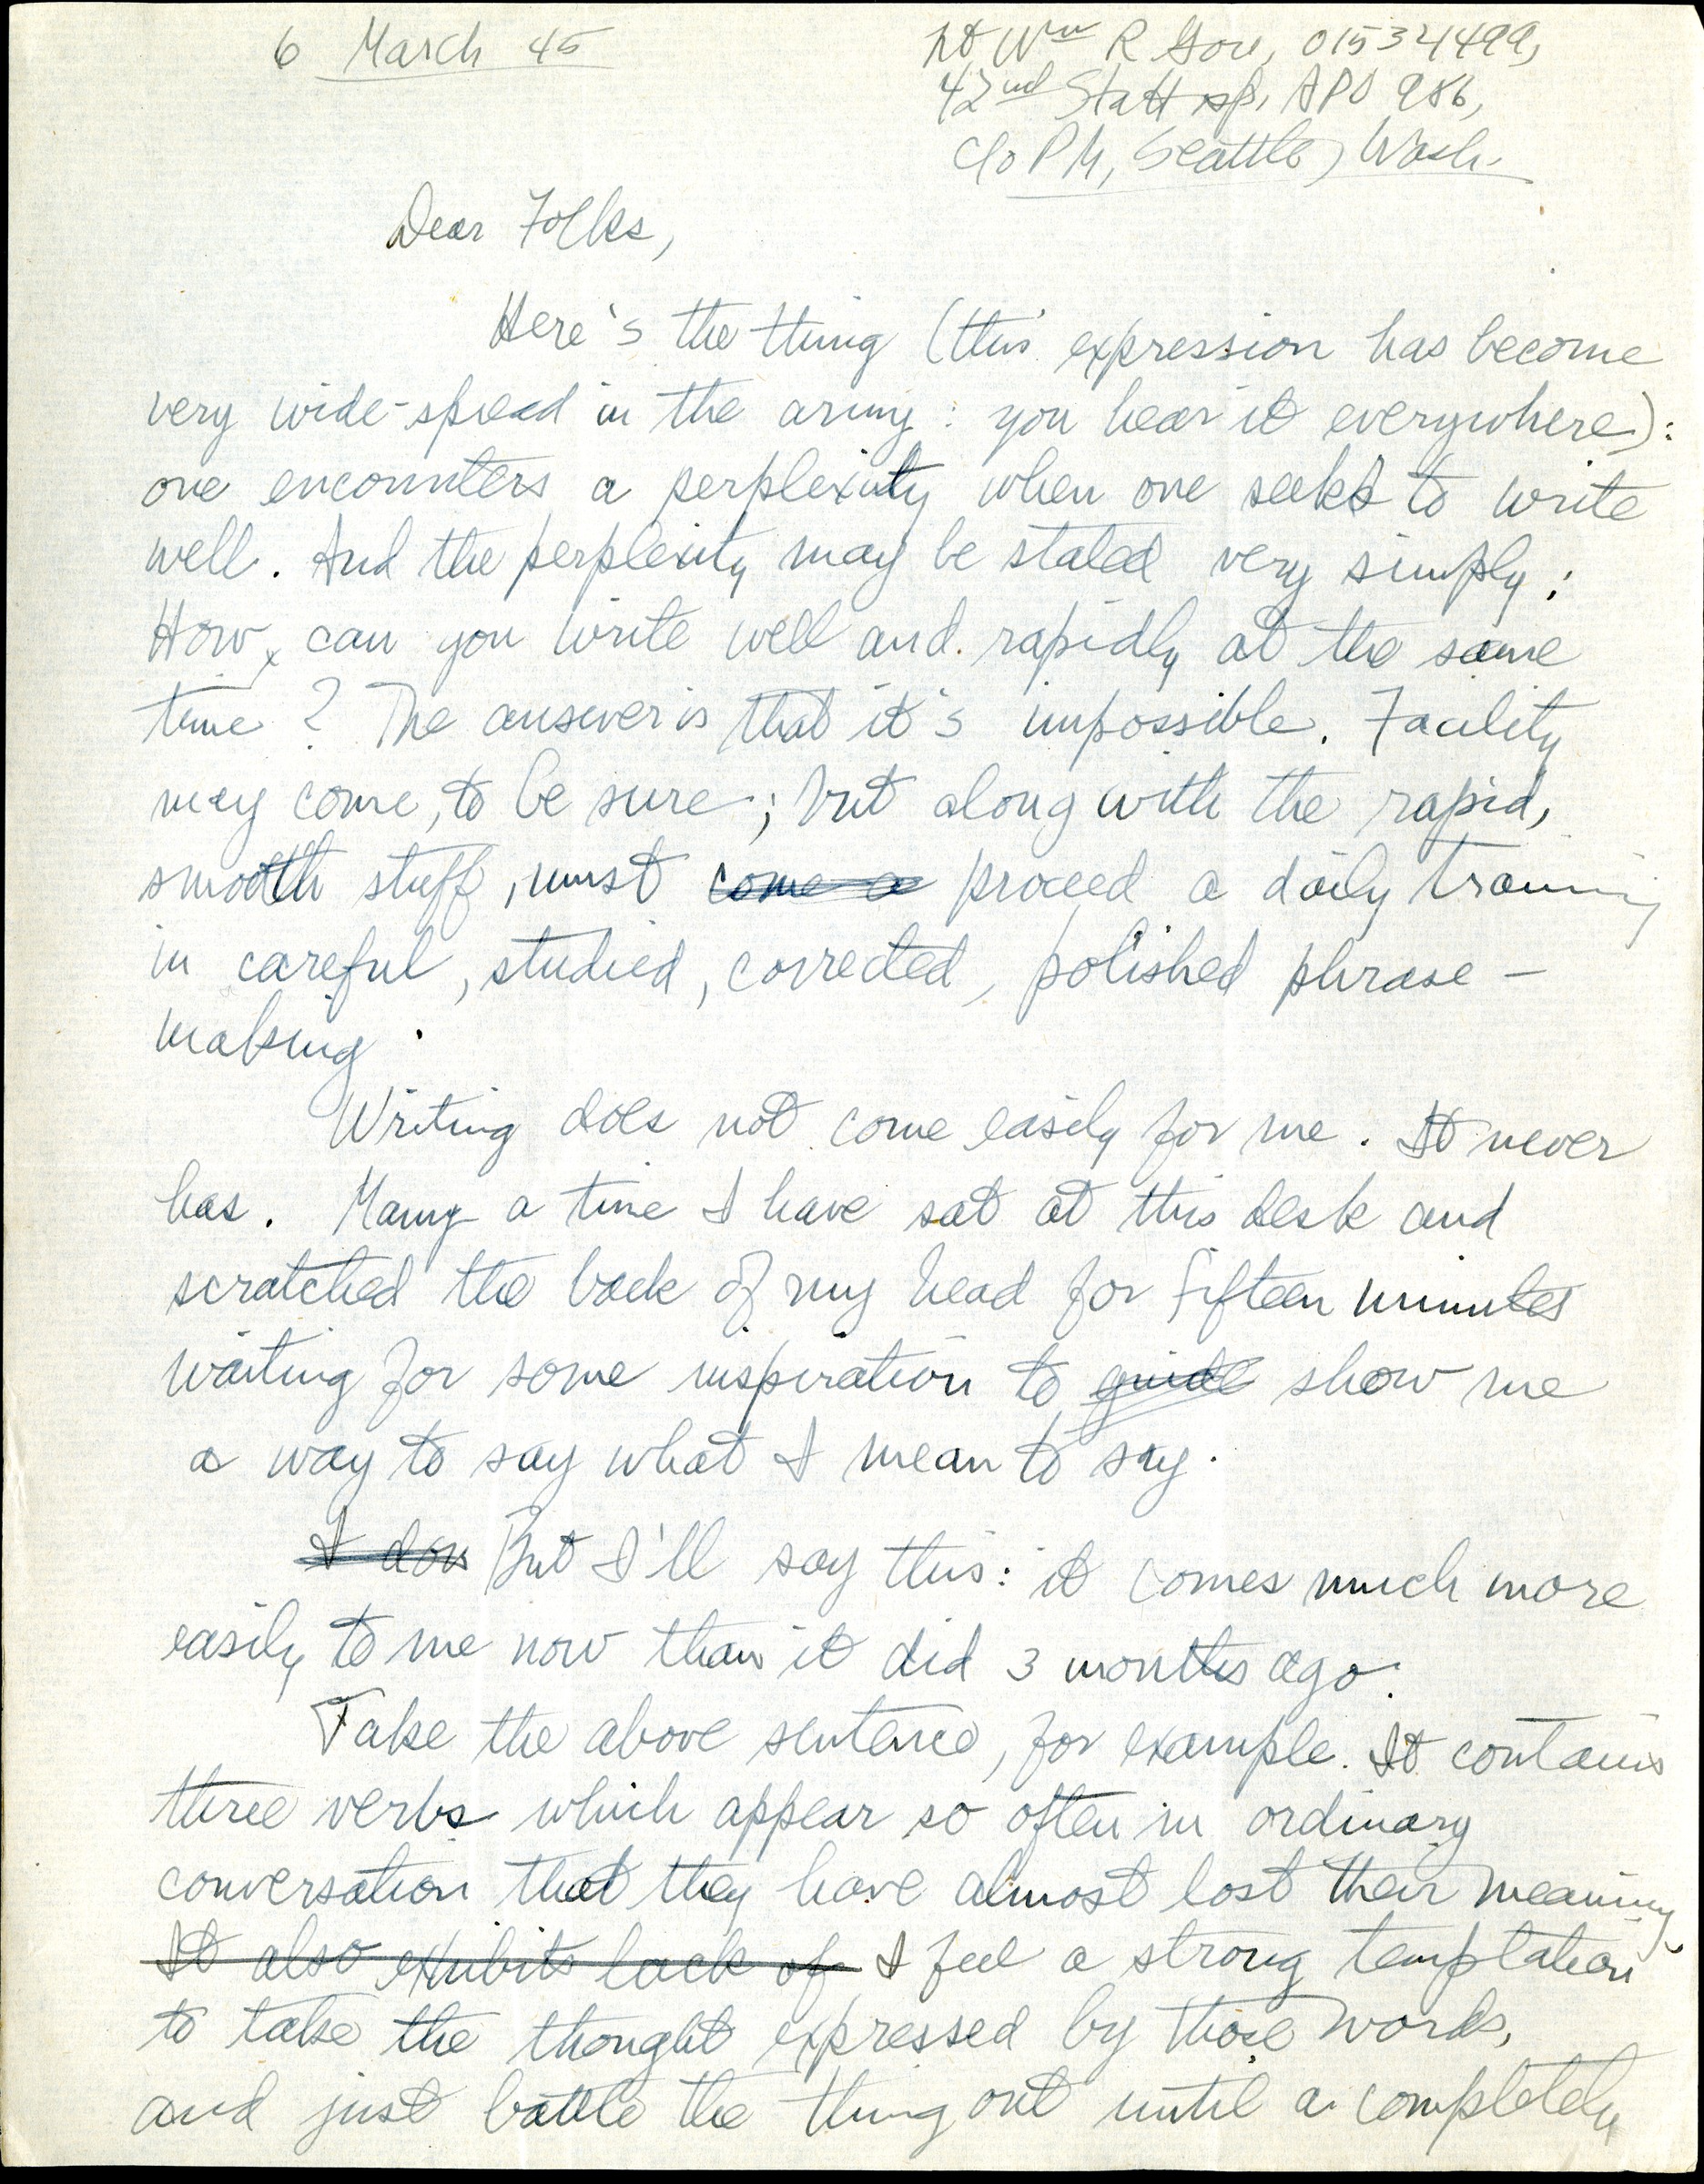 6 March 45
Lt Wm R Gove, 01534499,
42nd Sta Hosp, APO 986,
c/o PM, Seattle, Wash.
Dear Folks,
Here's the thing (this expression has become
very wide-spread in the army: you hear it everywhere):
one encounters a perplexity when one seeks to write
well. And the perplexity may be stated very simply:
How can you write well and rapidly at the same
time? The answer is that it's impossible. Facility
may come, to be sure; but along with the rapid,
smooth stuff, must come a proceed a daily training
in careful, studied, corrected, polished phrase-
making.
Writing does not come easily for me. It never
has. Many a time I have sat at this desk and
scratched the back of my head for fifteen minutes
waiting for some inspiration to guide show me
a way to say what I mean to say.
I don But I'll say this: it comes much more
easily to me now than it did 3 months ago.
Take the above sentence, for example. It contains
three verbs which appear so often in ordinary
conversation that they have almost lost their meaning.
It also exhibits lack of I feel a strong temptation
to take the thought expressed by those words,
and just battle the thing out until a completely